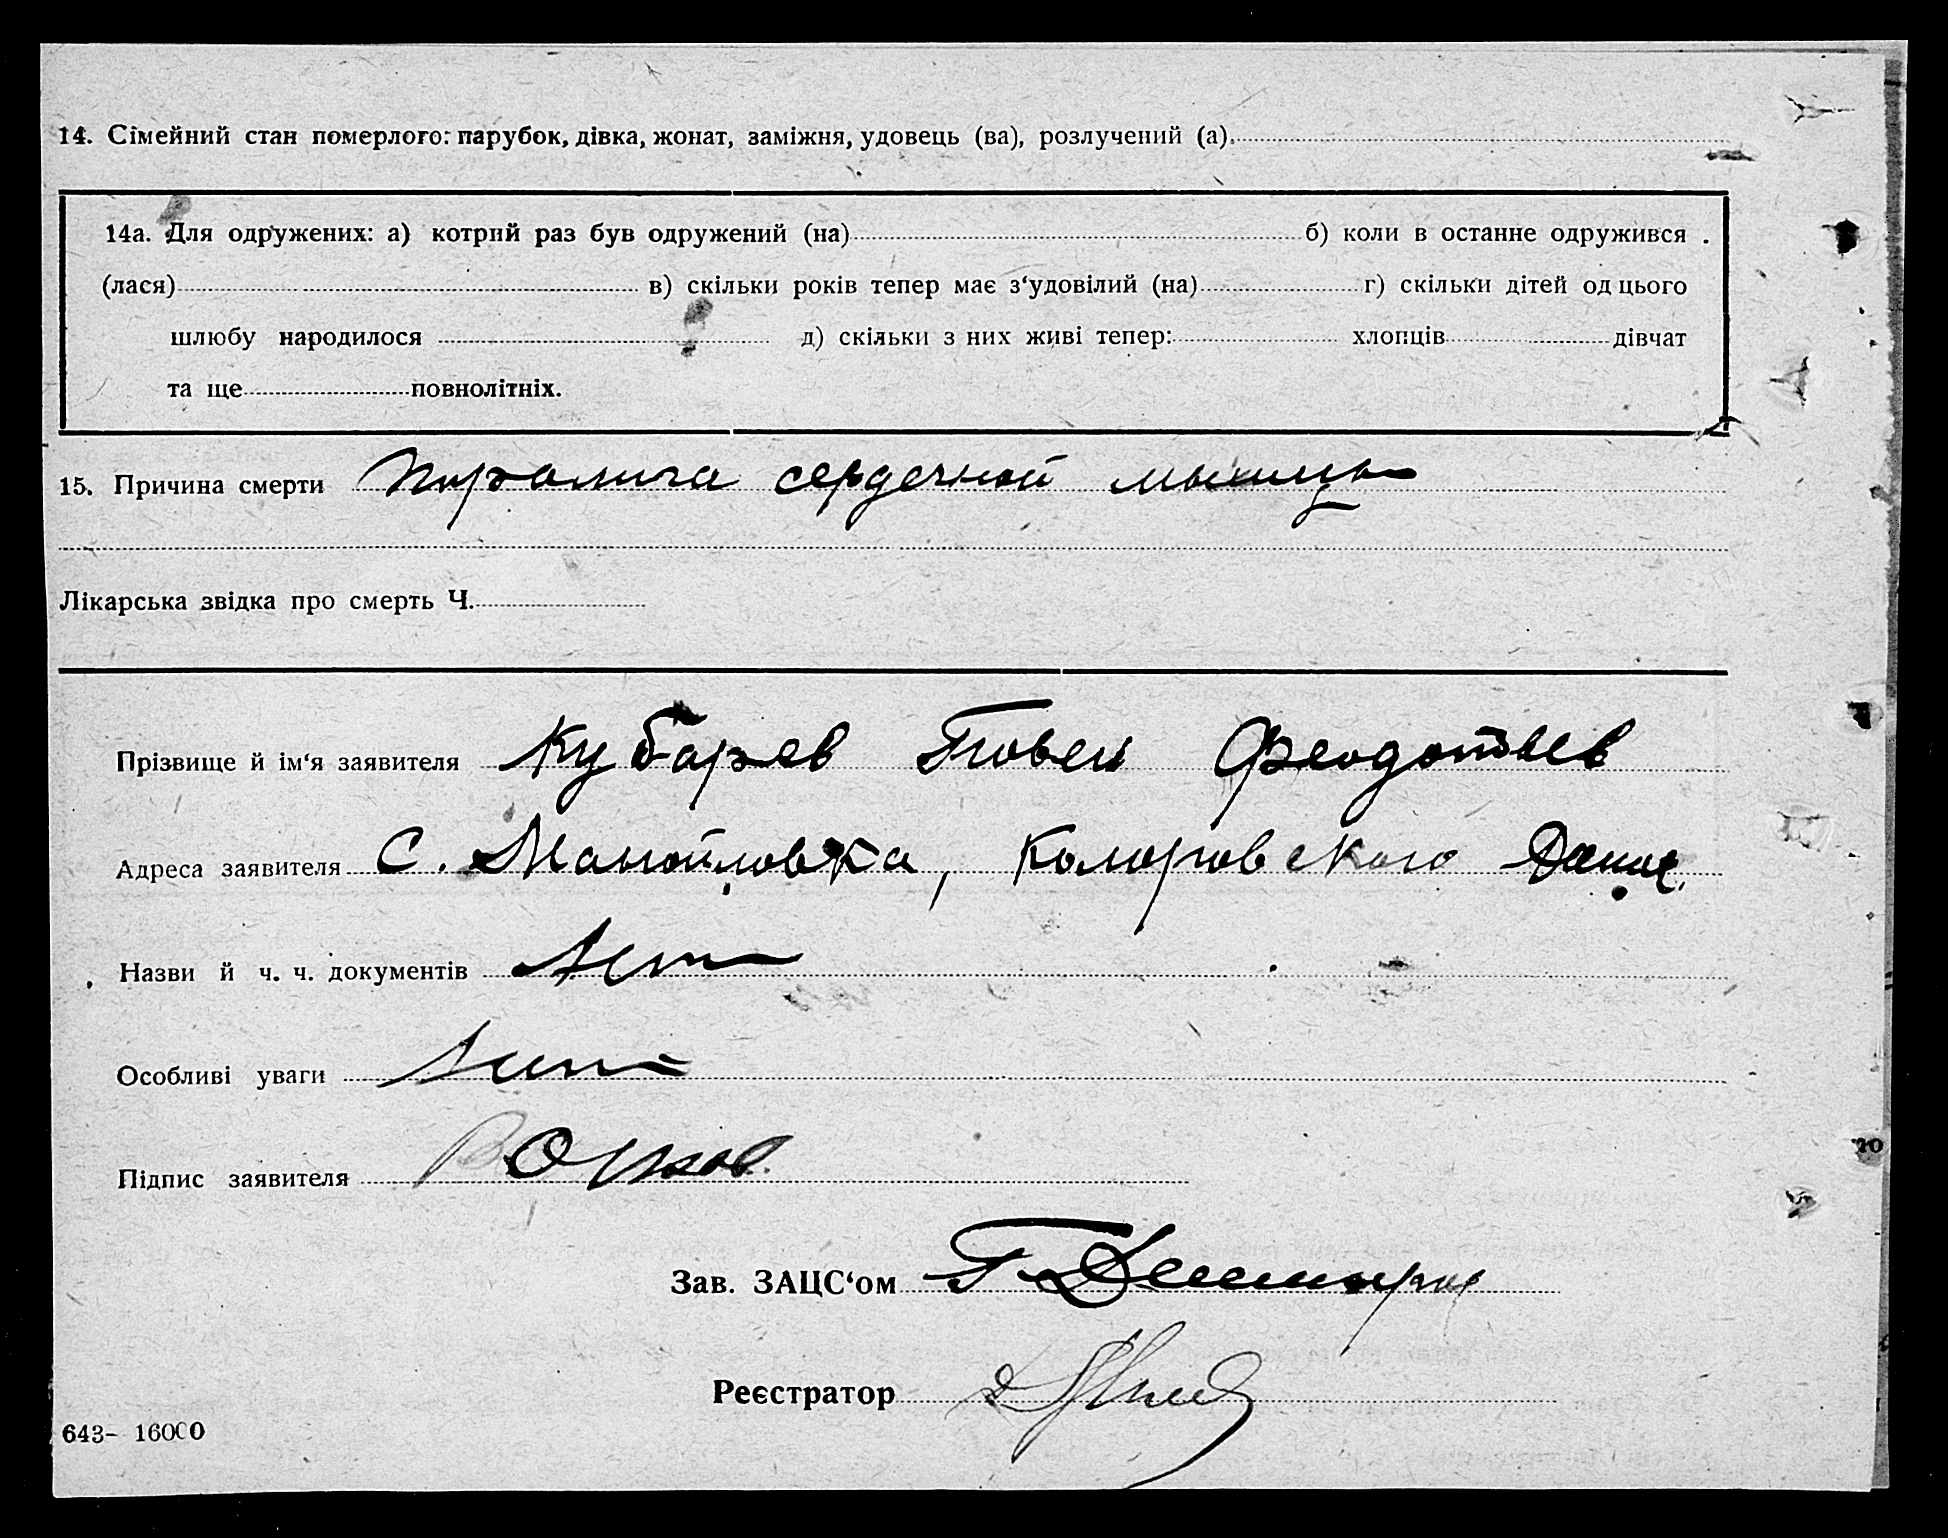 14. Сімейний стан померлого: парубок, дівка, жонат, заміжня, удовець (ва), розлучений (а)
14а. Для одружених: а) котрий раз був одружений (на) б) коли в останне одружився
(лася) в) скільки років тепер має з‘удовілий (на) г) скільки дітей од цього
шлюбу народилося д) скільки з них живі тепер: хлопців дівчат
та ще повнолітніх.
15. Причина смерти паралича сердечной мышцы
Лікарська звідка про смерть Ч.
Прізвище й ім‘я заявителя Кубарев Феодотьев
Адреса заявителя С. Манойловка,
Назви й ч. ч. документів
Особливі уваги
Підпис заявителя
Зав. ЗАЦС‘ом
Реєстратор
643- 16000